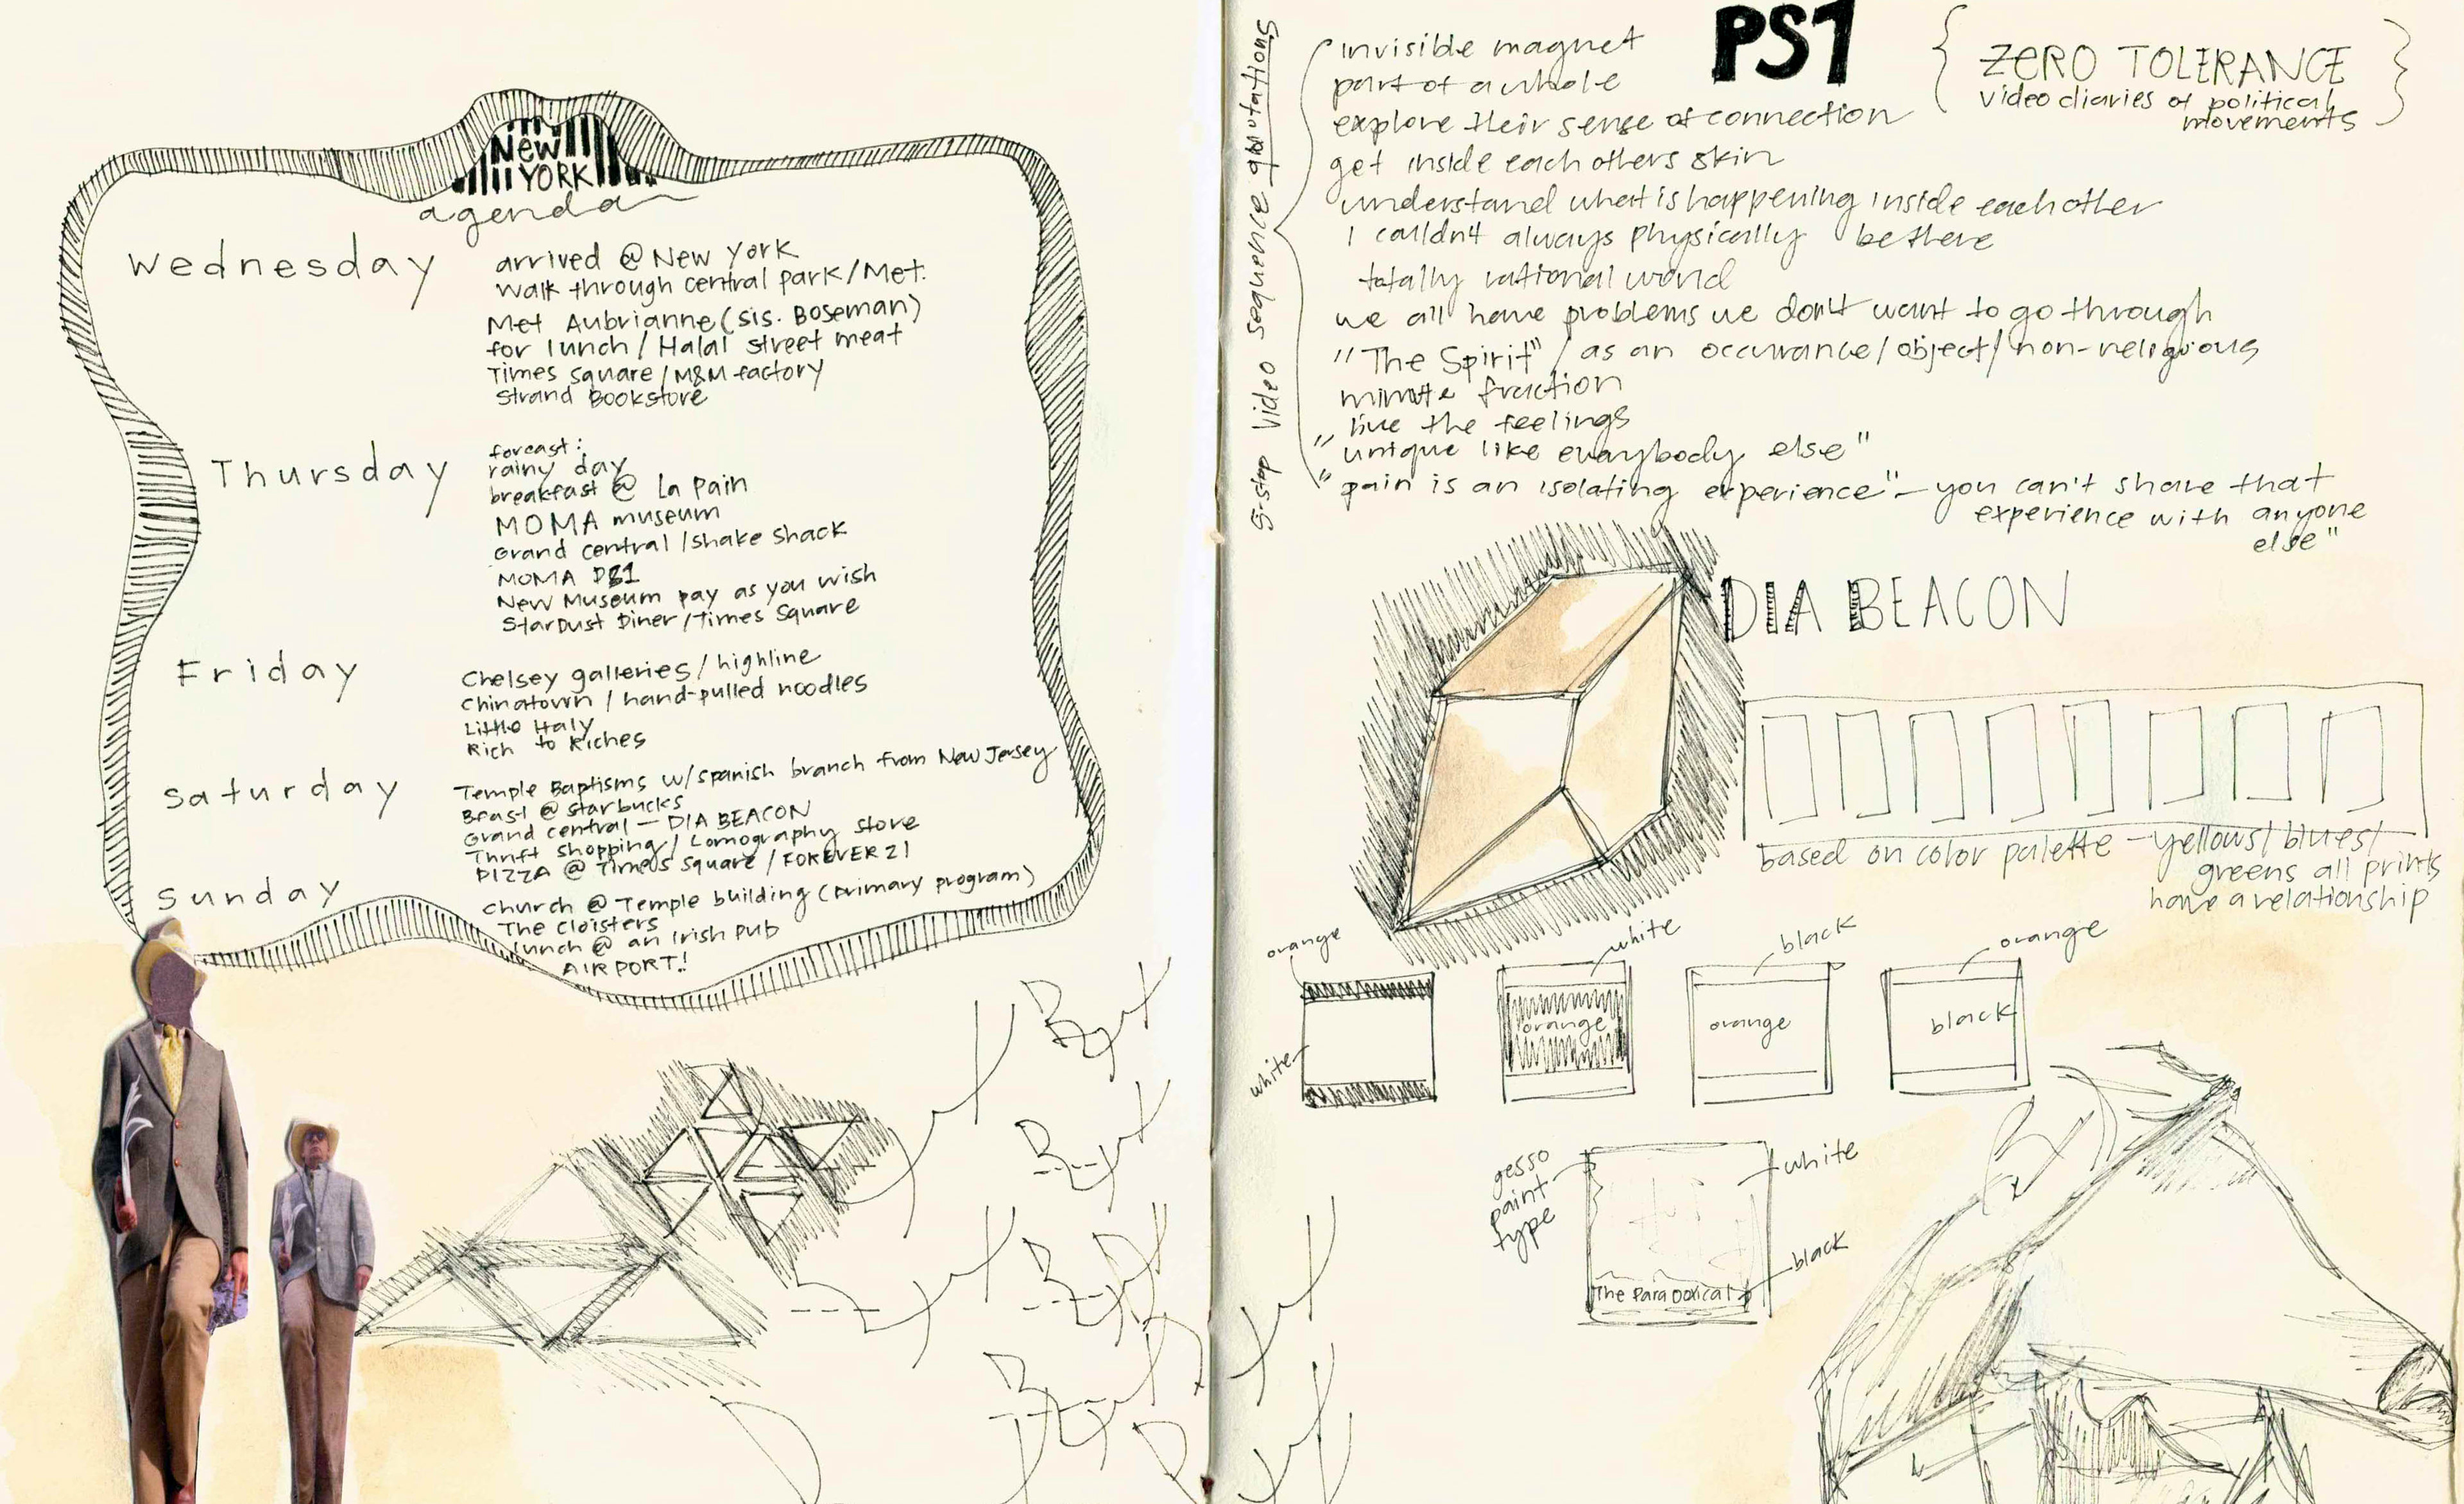 New
YORK
agenda
Wednesday
arrived @ New York
walk through central park/Met.
Met Aubrianne (sis. Boseman)
for lunch / Halal street meat
Times square / M&M factory
Strand Bookstore
Thursday
forcast:
rainy day
breakfast @ La Pain
MOMA museum
Grand central / shake shack
MOMA PS1
New Museum pay as you wish
StarDust Diner / Times Square
Friday
Chelsey galleries / highline
Chinatown / hand-pulled noodles
Little Italy
Rich to Riches
Saturday
Temple Baptisms w/ spanish branch from New Jersey
Bfast @ starbucks
Grand central — DIA BEACON
Thrift shopping / Lomography store
PIZZA @ Times Square / FOREVER 21
Sunday
church @ Temple building (primary program)
The cloisters
lunch @ an Irish Pub
AIRPORT!
PS1
ZERO TOLERANCE
video diaries of political
movements
video sequence
invisible magnet
part of a whole
explore their sense of connection
get inside each others skin
understand what is happening inside each other
I couldn't always physically be there
totally rational world
we all have problems we don't want to go through
"The Spirit" / as an occurance / object / non-religious
minute fraction
live the feelings
"unique like everybody else"
"pain is an isolating experience" – you can't share that
experience with anyone
else"
DIA BEACON
based on color palette – yellows/blues/
greens all prints
have a relationship
orange
white
white
orange
black
orange
orange
black
gesso
paint
type
white
black
The Paradoxical